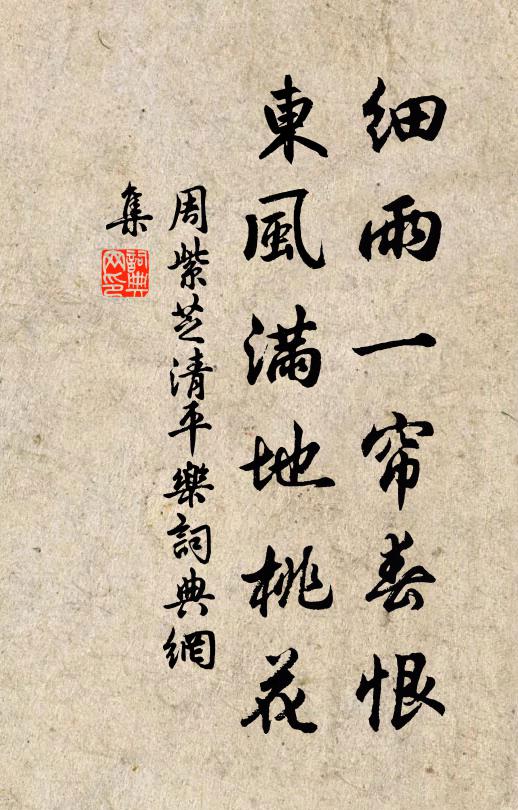 細雨一帘春恨
東風滿地桃花
周紫芝清平樂詞典網
集
詞典
网印